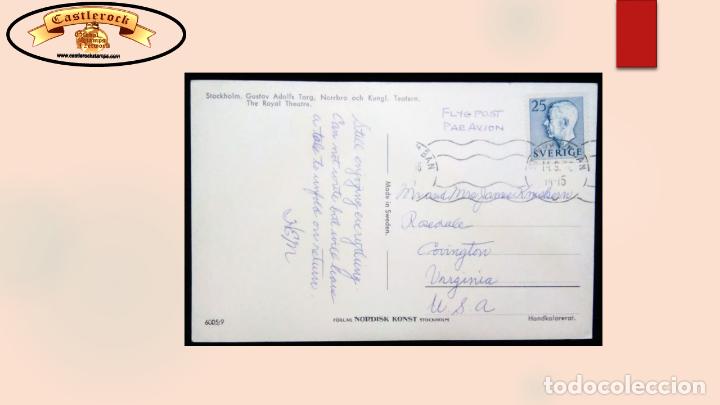 Castlerock
Global
Stamps
Network
www.castlerockstamps.com
Stockholm. Gustav Adolfs Torg, Norrbro och Kungl. Teatern.
The Royal Theatre.
FLYGPOST
PAR AVION
25
SVERIGE
14.9.
14-15
Still enjoying everything
Can not write but will have
a tale to unfold on return.
Made in Sweden.
Mr and Mrs James
Rosedale
Covington
Virginia
U.S.A
6005/9
FÖRLAG NORDISK KONST STOCKHOLM
Handkolorerat.
todocoleccion